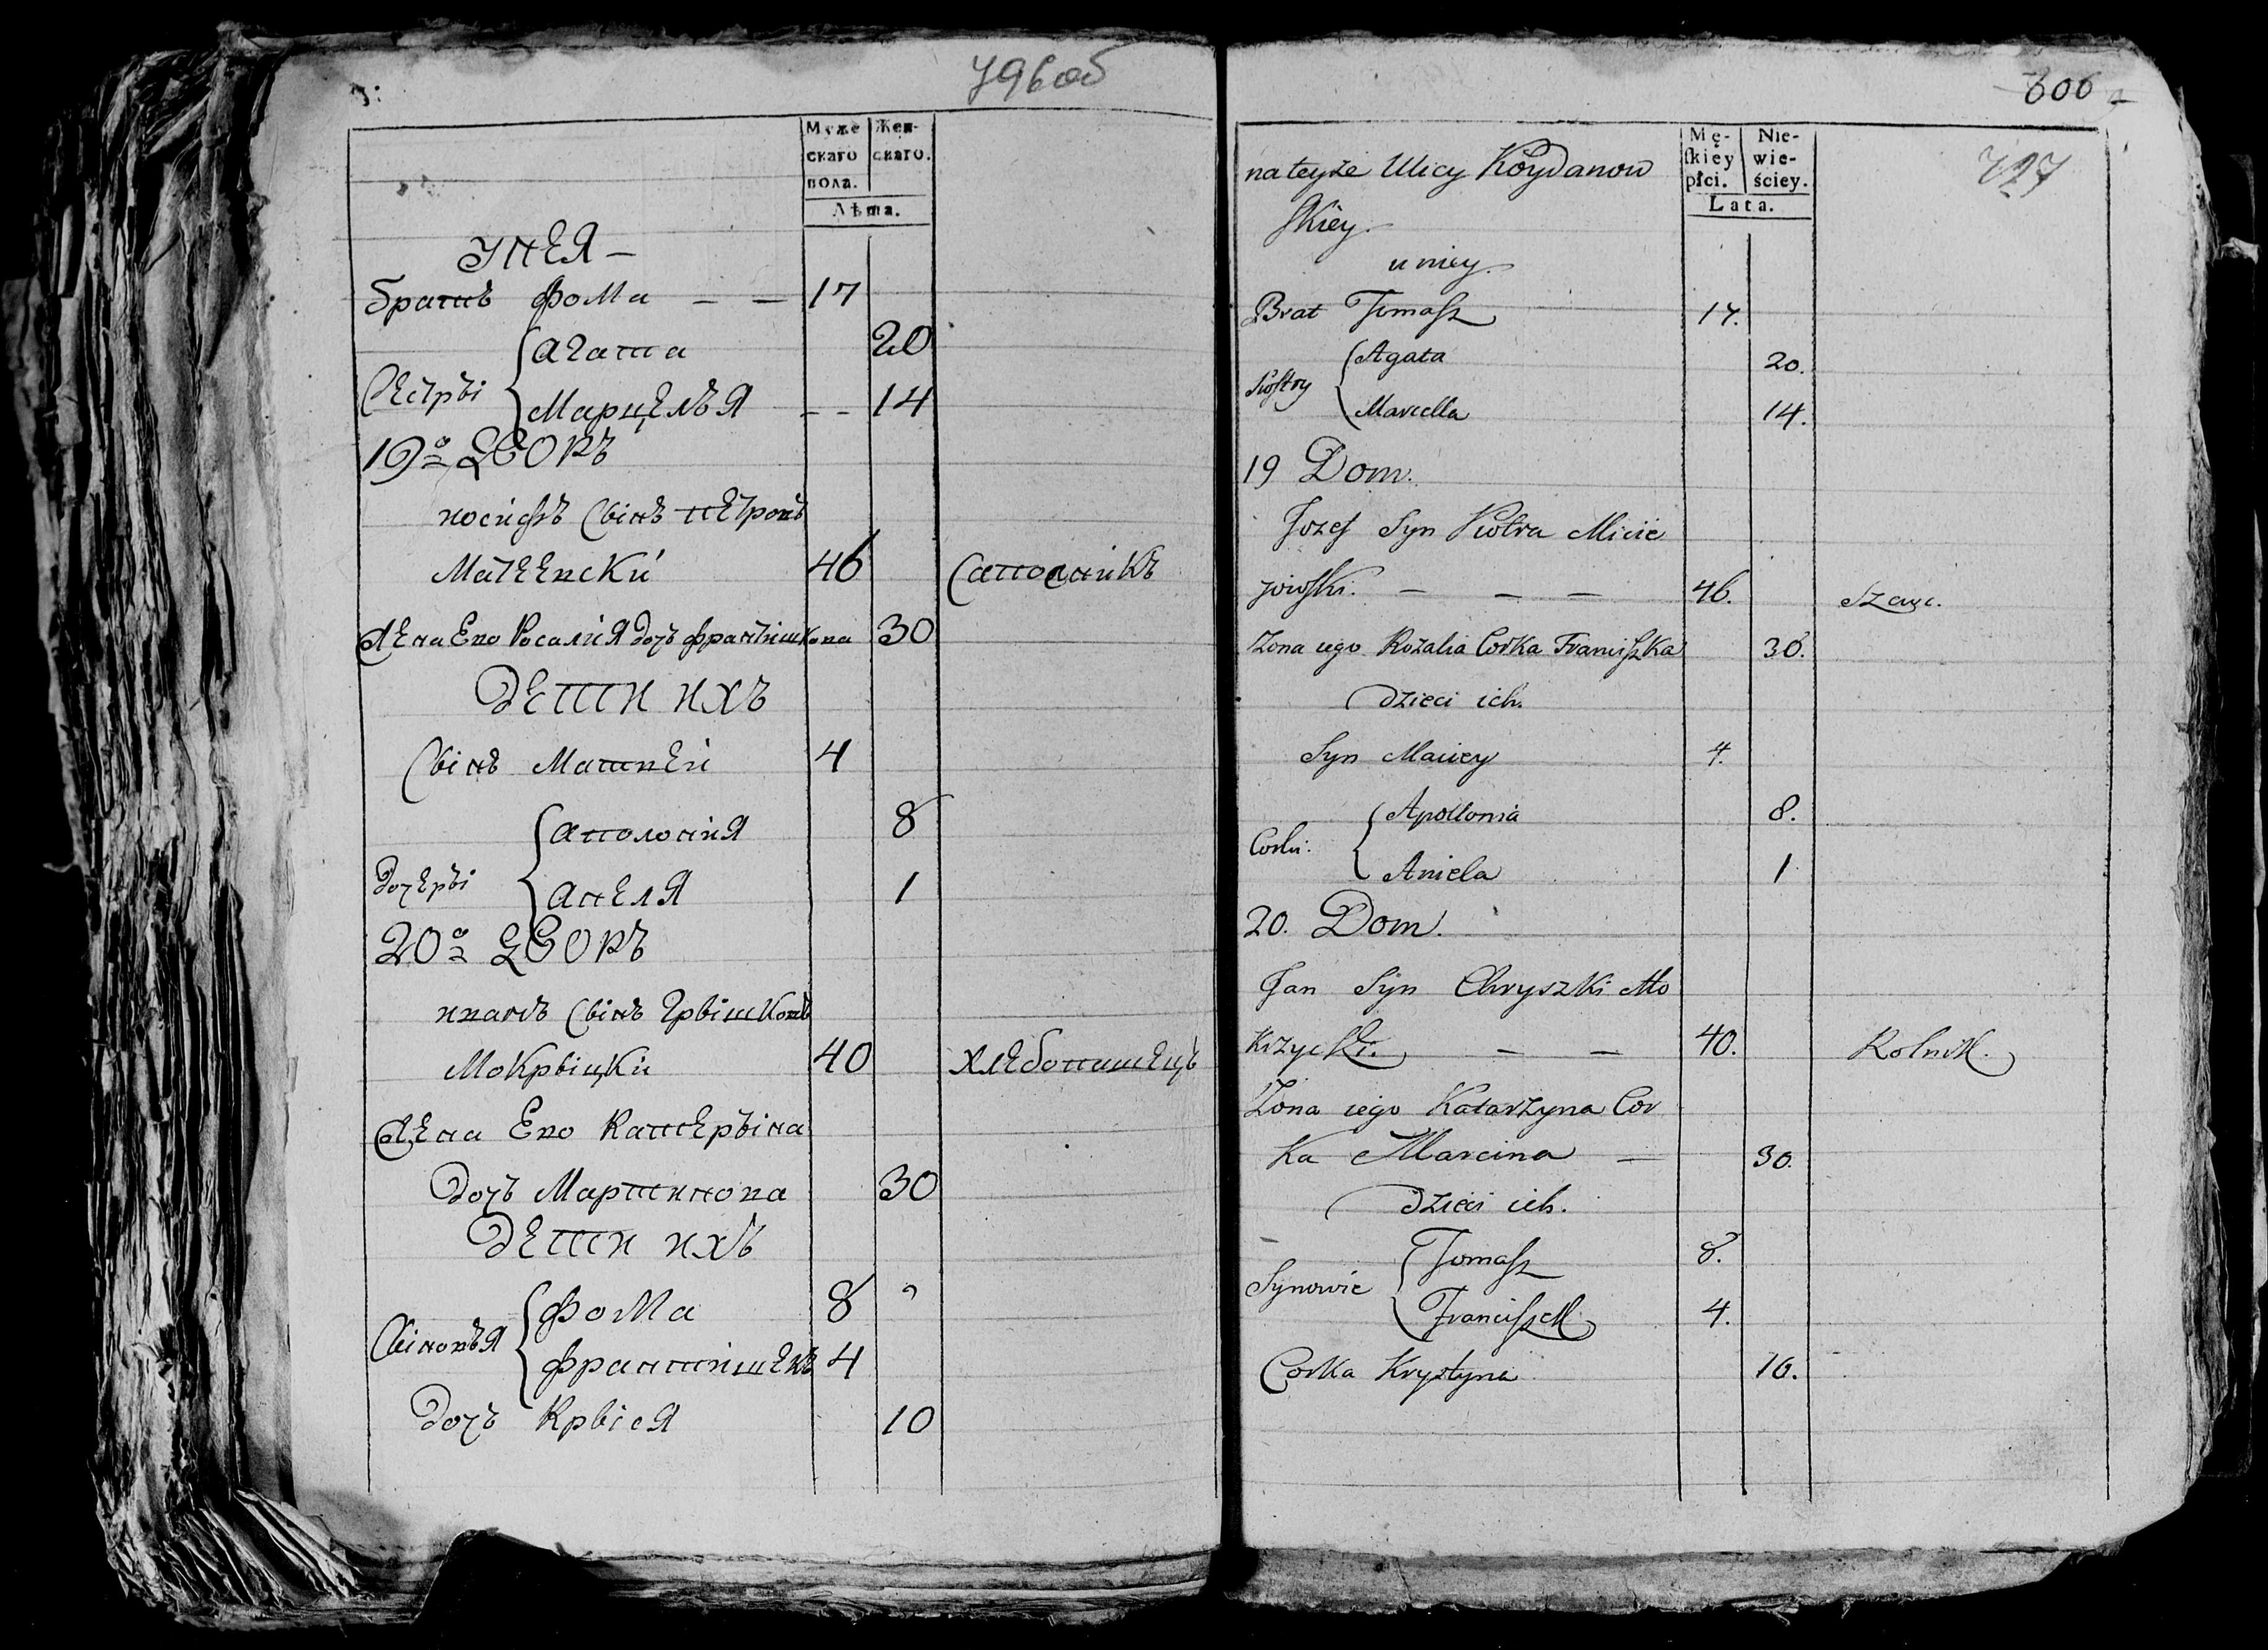 796об
Муже
скаго
пола.
Жен-
скаго.
Лѣта.
унея —
братъ фома — — 17
Сестры
агата 20
Марцелья - - 14
19о дворъ
иосифъ сынъ петровъ
Мацеевски 46 сапожникъ
жена Ево Росалия дочъ франтишкова 30
дети ихъ
сынъ Матвей 4
дочеры
аполония 8
анеля 1
20о дворъ
иванъ сынъ грышковъ
Мокрыцки 40 хлебопашецъ
жена Ево Катерына
дочъ Мартинова 30
дети ихъ
сыновья
фома 8
франтишекъ 4
дочъ Крыся 10
806
727
na teyże Ulicy Koydanow
skiey.
Mę-
skiéy
płci.
Nie-
wie-
ściey.
Lata.
u niey.
Brat Tomasz 17.
Siostry
Agata 20.
Marcella 14.
19 Dom.
Jozef Syn Piotra Macie
jowski. — — — 46. Szewc.
Zona iego Rozalia Corka Franciszka 30.
dzieci ich.
Syn Maciey 4.
Corki.
Apollonia 8.
Aniela 1
20. Dom.
Jan Syn Chryszki Mo
krzycki. — — 40. Rolnik.
Zona iego Katarzyna Cor
ka Marcina — 30.
dzieci ich.
Synowie
Tomasz 8.
Franciszek 4.
Corka Krystyna 10.